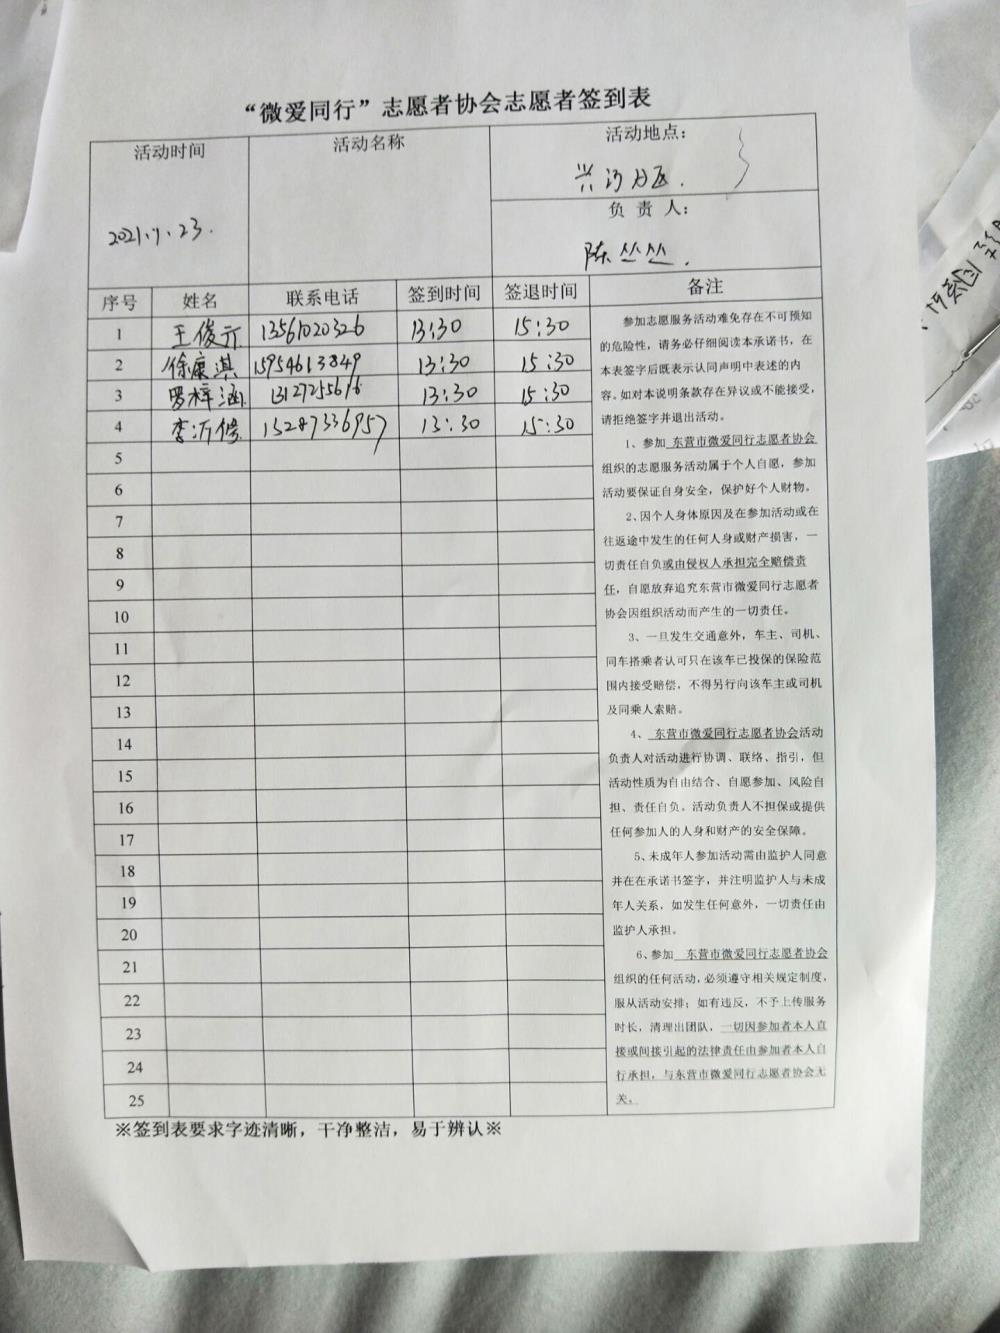 “微爱同行”志愿者协会志愿者签到表
活动时间 活动名称 活动地点：
兴河社区.
2021.11.23.
负 责 人：
陈丛丛.
序号 姓名 联系电话 签到时间 签退时间 备注
1 王俊 13561020326 13:30 15:30
2 徐康淇 15954613849 13:30 15:30
3 罗梓涵 13127255616 13:30 15:30
4 李沂修 15287336957 13:30 15:30
5
6
7
8
9
10
11
12
13
14
15
16
17
18
19
20
21
22
23
24
25
参加志愿服务活动难免存在不可预知
的危险性，请务必仔细阅读本承诺书，在
本表签字后既表示认同声明中表述的内
容。如对本说明条款存在异议或不能接受，
请拒绝签字并退出活动。
1、参加 东营市微爱同行志愿者协会
组织的志愿服务活动属于个人自愿，参加
活动要保证自身安全，保护好个人财物。
2、因个人身体原因及在参加活动或在
往返途中发生的任何人身或财产损害，一
切责任自负或由侵权人承担完全赔偿责
任，自愿放弃追究东营市微爱同行志愿者
协会因组织活动而产生的一切责任。
3、一旦发生交通意外，车主、司机、
同车搭乘者认可只在该车已投保的保险范
围内接受赔偿，不得另行向该车主或司机
及同乘人索赔。
4、 东营市微爱同行志愿者协会活动
负责人对活动进行协调、联络、指引，但
活动性质为自由结合、自愿参加、风险自
担、责任自负。活动负责人不担保或提供
任何参加人的人身和财产的安全保障。
5、未成年人参加活动需由监护人同意
并在在承诺书签字，并注明监护人与未成
年人关系，如发生任何意外，一切责任由
监护人承担。
6、参加 东营市微爱同行志愿者协会
组织的任何活动，必须遵守相关规定制度，
服从活动安排；如有违反，不予上传服务
时长，清理出团队，一切因参加者本人直
接或间接引起的法律责任由参加者本人自
行承担，与东营市微爱同行志愿者协会无
关。
※签到表要求字迹清晰，干净整洁，易于辨认※